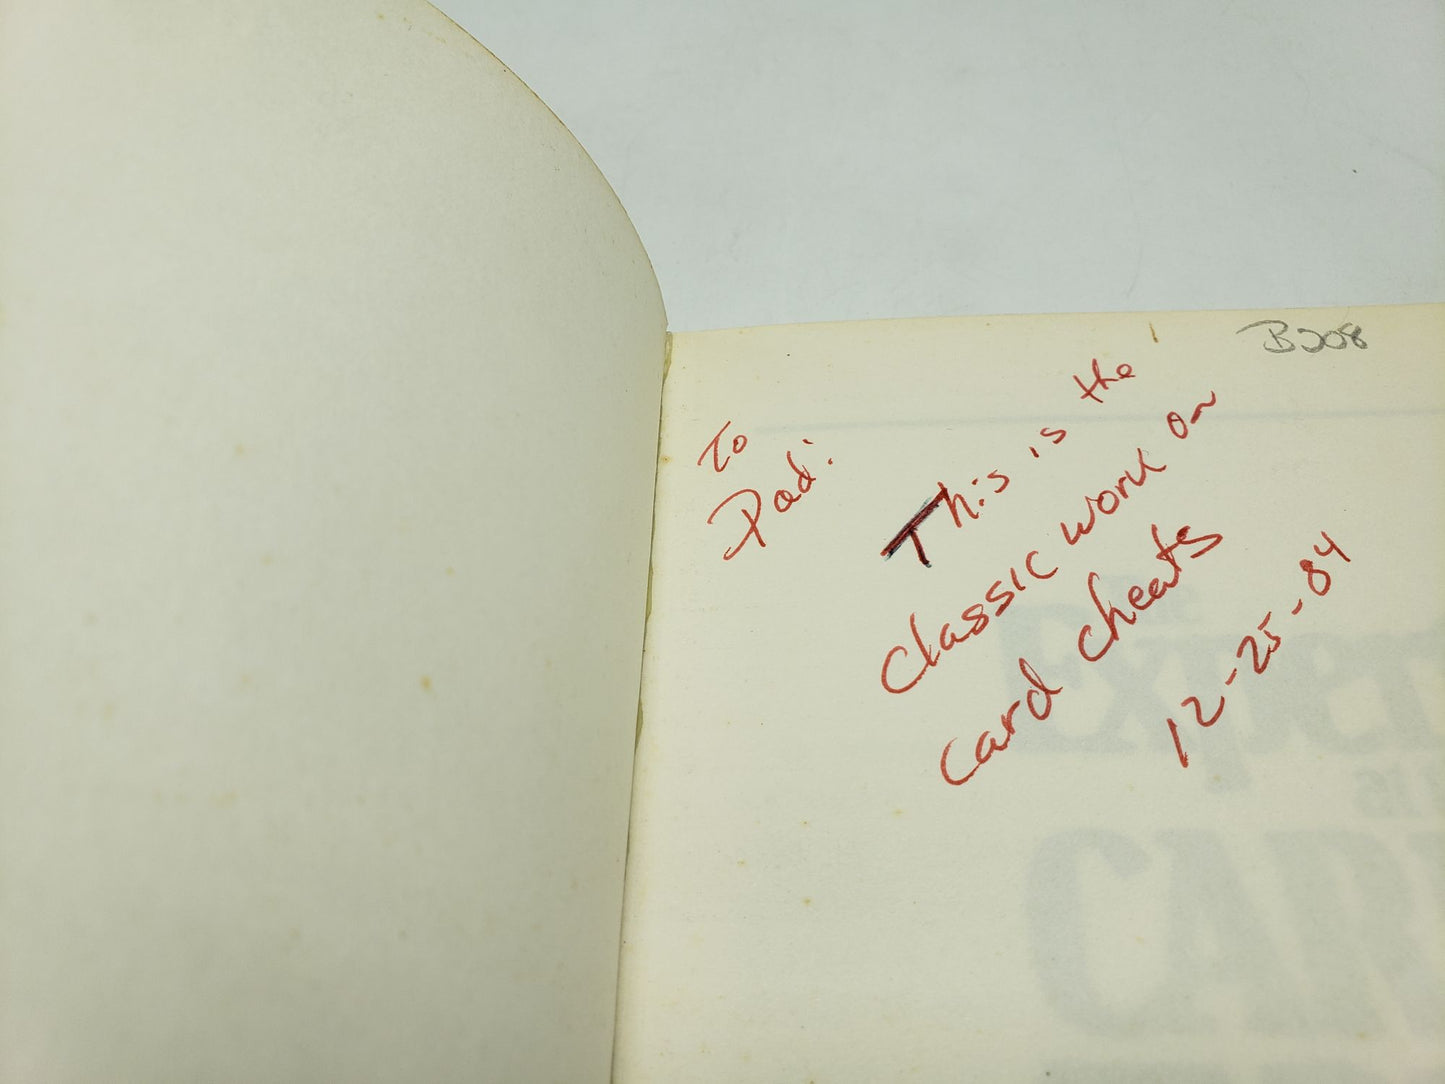 B208
To
Pad:
This is the
Classic work on
card cheats
12-25-84